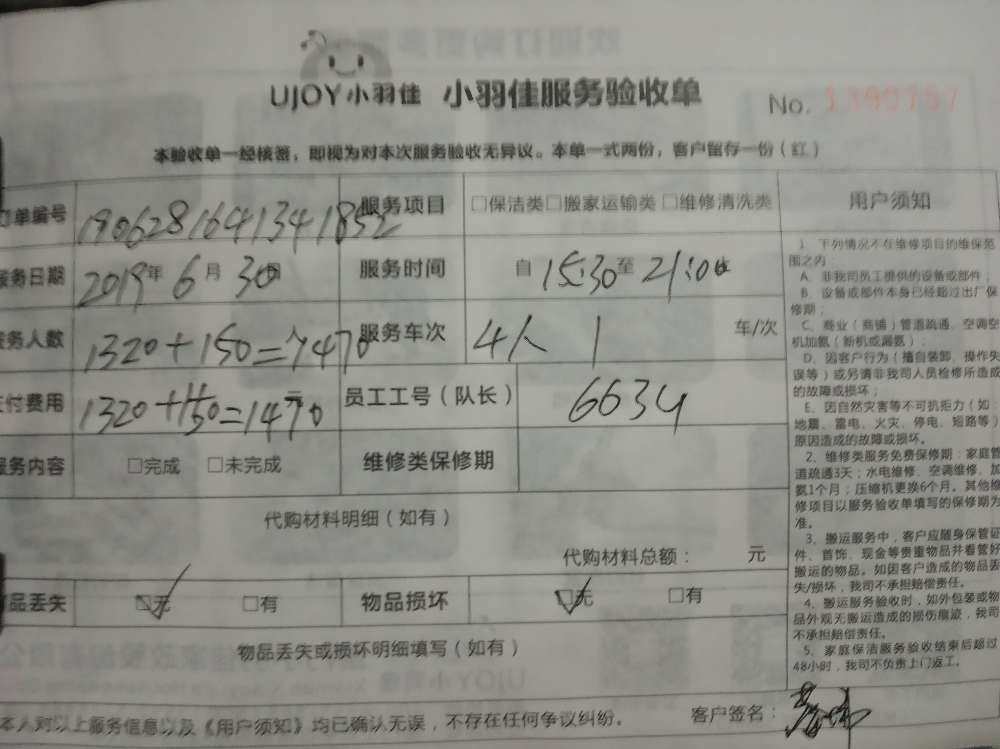 UJOY小羽佳 小羽佳服务验收单 No. 1390757
本验收单一经核签，即视为对本次服务验收无异议。本单一式两份，客户留存一份（红）
单编号 1906281641341852 服务项目 □保洁类□搬家运输类 □维修清洗类 用户须知
服务日期 2019年 6月 30日 服务时间 自 15:30 至 21:00
务人数 1320+150=1470 服务车次 4人 1 车/次
付费用 1320+150=1470 元 员工工号（队长） 6634
服务内容 □完成 □未完成 维修类保修期
代购材料明细（如有）
代购材料总额： 元
品丢失 ☑无 □有 物品损坏 ☑无 □有
物品丢失或损坏明细填写（如有）
1、下列情况不在维修项目的维保范
围之内：
A、非我司员工提供的设备或部件；
B、设备或部件本身已经超过出厂保
修期；
C、商业（商铺）管道疏通、空调空
机加氨（新机或漏氨）；
D、因客户行为（擅自装卸、操作失
误等）或另请非我司人员检修所造成
的故障或损坏；
E、因自然灾害等不可抗拒力（如：
地震、雷电、火灾、停电、短路等）
原因造成的故障或损坏。
2、维修类服务免费保修期：家庭管
道疏通3天；水电维修、空调维修、加
氨1个月；压缩机更换6个月。其他维
修项目以服务验收单填写的保修期为
准。
3、搬运服务中，客户应随身保管证
件、首饰、现金等贵重物品并看管好
搬运的物品。如因客户造成的物品丢
失/损坏，我司不承担赔偿责任。
4、搬运服务验收时，如外包装或物
品外观无搬运造成的损伤痕迹，我司
不承担赔偿责任。
5、家庭保洁服务验收结束后超过
48小时，我司不负责上门返工。
本人对以上服务信息以及《用户须知》均已确认无误，不存在任何争议纠纷。 客户签名：